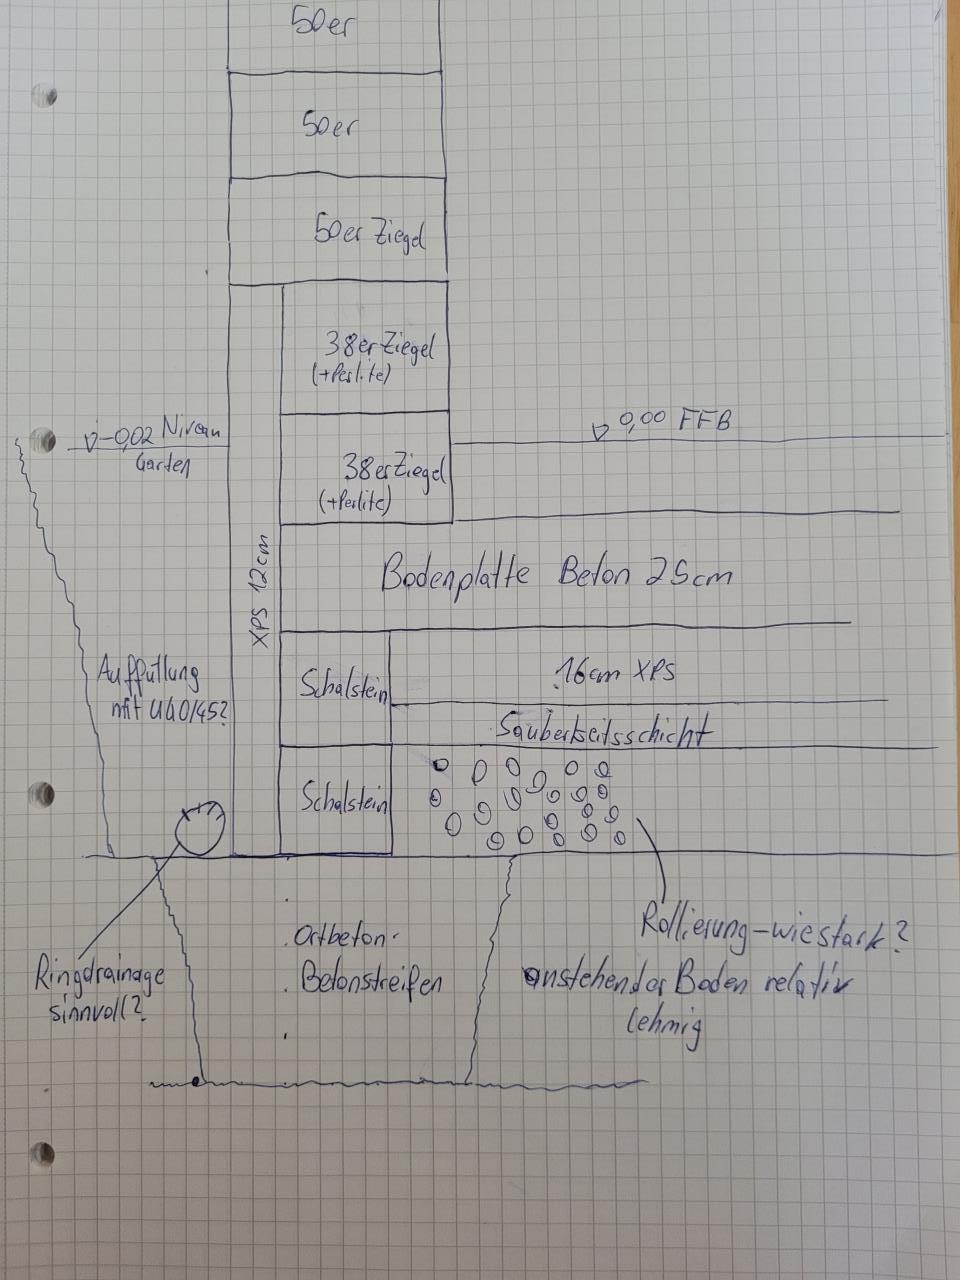 50er
50er
50er Ziegel
38er Ziegel
(+Perlite)
▽ -0,02 Niveau
Garten
▽ 0,00 FFB
38er Ziegel
(+Perlite)
XPS 12cm
Bodenplatte Beton 25cm
Auffüllung
mit U40/45?
Schalstein
16cm XPS
Sauberkeitsschicht
Schalstein
Ringdrainage
sinnvoll?
Ortbeton-
Betonstreifen
Rollierung-wie stark?
anstehender Boden relativ
lehmig